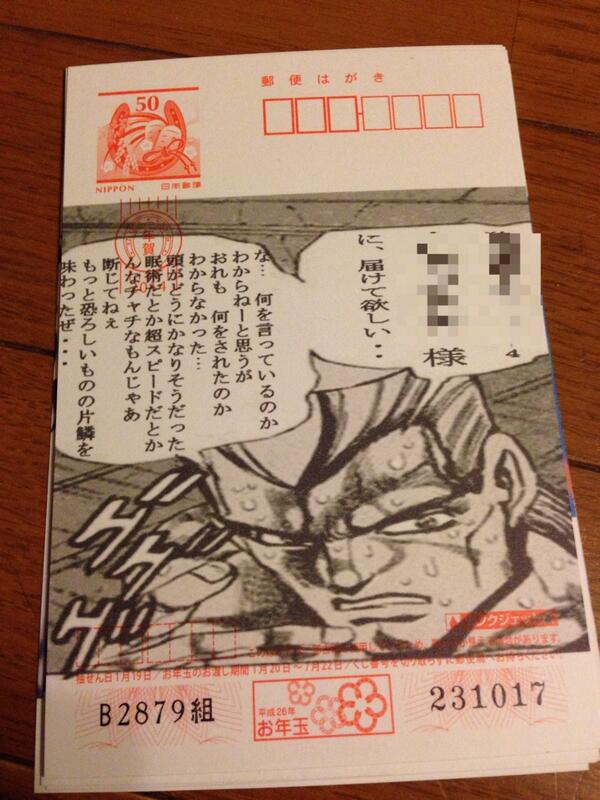 郵便はがき
50
NIPPON
日本郵便
年賀
様
に、届けて欲しい・・
な… 何を言っているのか
わからねーと思うが
おれも 何をされたのか
わからなかった…
頭がどうにかなりそうだった
眠術だとか超スピードだとか
んなチャチなもんじゃあ
断じてねぇ
もっと恐ろしいものの片鱗を
味わったぜ・・・
4
抽せん日1月19日/お年玉のお渡し期間1月20日〜7月22日/くじ番号を切り取らずに郵便局へお持ちください。
B2879組
平成26年
お年玉
231017